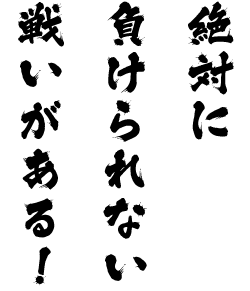 絶対に
負けられない
戦いがある！